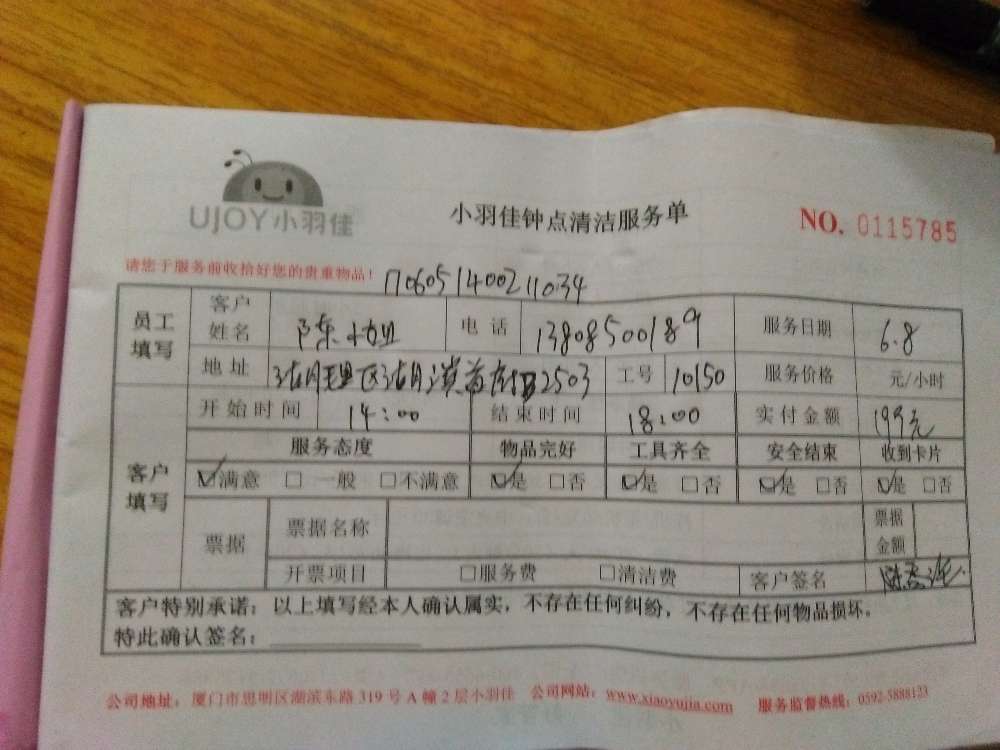 UJOY小羽佳
小羽佳钟点清洁服务单
NO. 0115785
请您于服务前收拾好您的贵重物品！
17060514002 11034
员工填写 客户姓名 陈小姐 电话 13808500189 服务日期 6.8
地址 2503 工号 10150 服务价格 元/小时
客户填写 开始时间 14:00 结束时间 18:00 实付金额 199元
服务态度 物品完好 工具齐全 安全结束 收到卡片
☑满意 □一般 □不满意 ☑是 □否 ☑是 □否 ☑是 □否 ☑是 □否
票据 票据名称 票据金额
开票项目 □服务费 □清洁费 客户签名
客户特别承诺：以上填写经本人确认属实，不存在任何纠纷，不存在任何物品损坏。
特此确认签名：
公司地址：厦门市思明区湖滨东路319号A幢2层小羽佳 公司网站：www.xiaoyujia.com 服务监督热线：0592-5888123